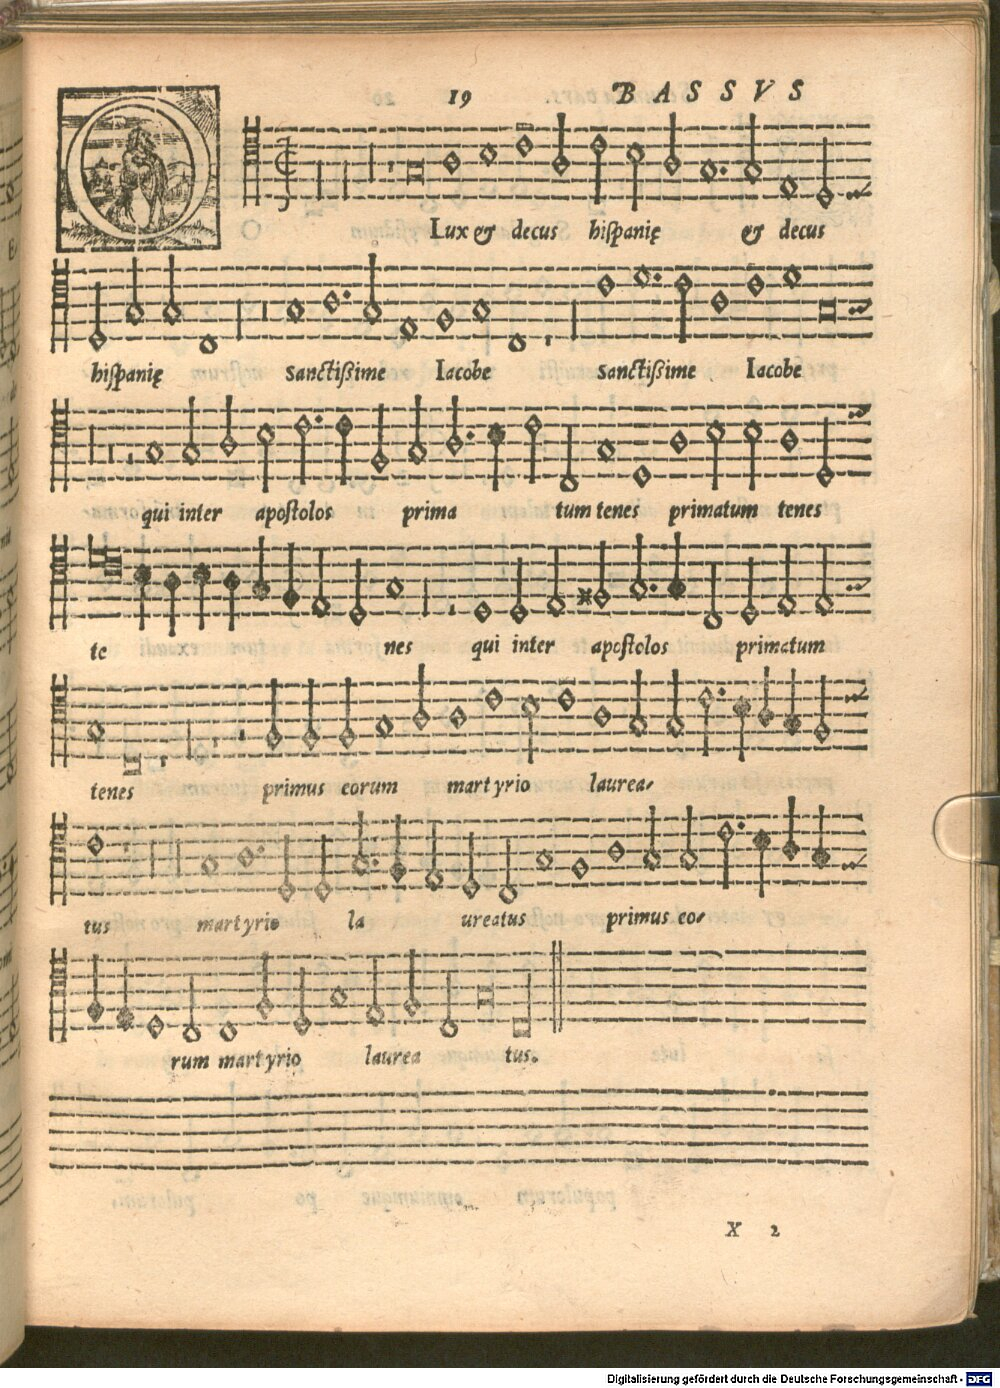 19 BASSVS
O Lux & decus hispanię & decus
hispanię sanctißime Iacobe sanctißime Iacobe
qui inter apostolos prima tum tenes primatum tenes
te nes qui inter apostolos primatum
tenes primus eorum martyrio laurea-
tus martyrio la ureatus primus eo-
rum martyrio laurea tus.
X 2
Digitalisierung gefördert durch die Deutsche Forschungsgemeinschaft - DFG